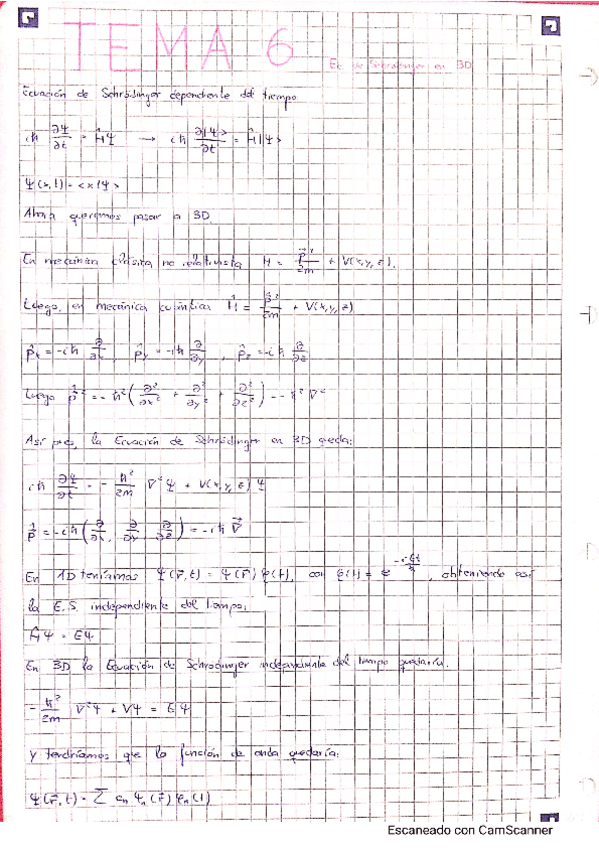 TEMA 6
Ec de Schrödinger en 3D
Ecuación de Schrödinger dependiente del tiempo
iℏ ∂Ψ/∂t = ĤΨ → iℏ ∂|Ψ>/∂t = Ĥ|Ψ>
Ψ(x,t) = <x|Ψ>
Ahora queremos pasar a 3D.
En mecánica clásica no relativista H = p⃗²/2m + V(x,y,z).
Luego, en mecánica cuántica Ĥ = p̂²/2m + V(x,y,z)
p̂x = -iℏ ∂/∂x, p̂y = -iℏ ∂/∂y, p̂z = -iℏ ∂/∂z
Luego p̂² = -ℏ² (∂²/∂x² + ∂²/∂y² + ∂²/∂z²) = -ℏ² ∇²
Así pues, la Ecuación de Schrödinger en 3D queda:
iℏ ∂Ψ/∂t = -ℏ²/2m ∇²Ψ + V(x,y,z) Ψ
p̂ = -iℏ (∂/∂x, ∂/∂y, ∂/∂z) = -iℏ ∇⃗
En 1D teníamos Ψ(r⃗,t) = Ψ(r⃗) φ(t), con φ(t) = e^(-iEt/ℏ), obteniendo así
la E.S. independiente del tiempo:
ĤΨ = EΨ
En 3D la Ecuación de Schrödinger independiente del tiempo quedaría:
-ℏ²/2m ∇²Ψ + VΨ = EΨ
y tendríamos que la función de onda quedaría:
Ψ(r⃗,t) = Σ cn Ψn(r⃗) φn(t)
Escaneado con CamScanner